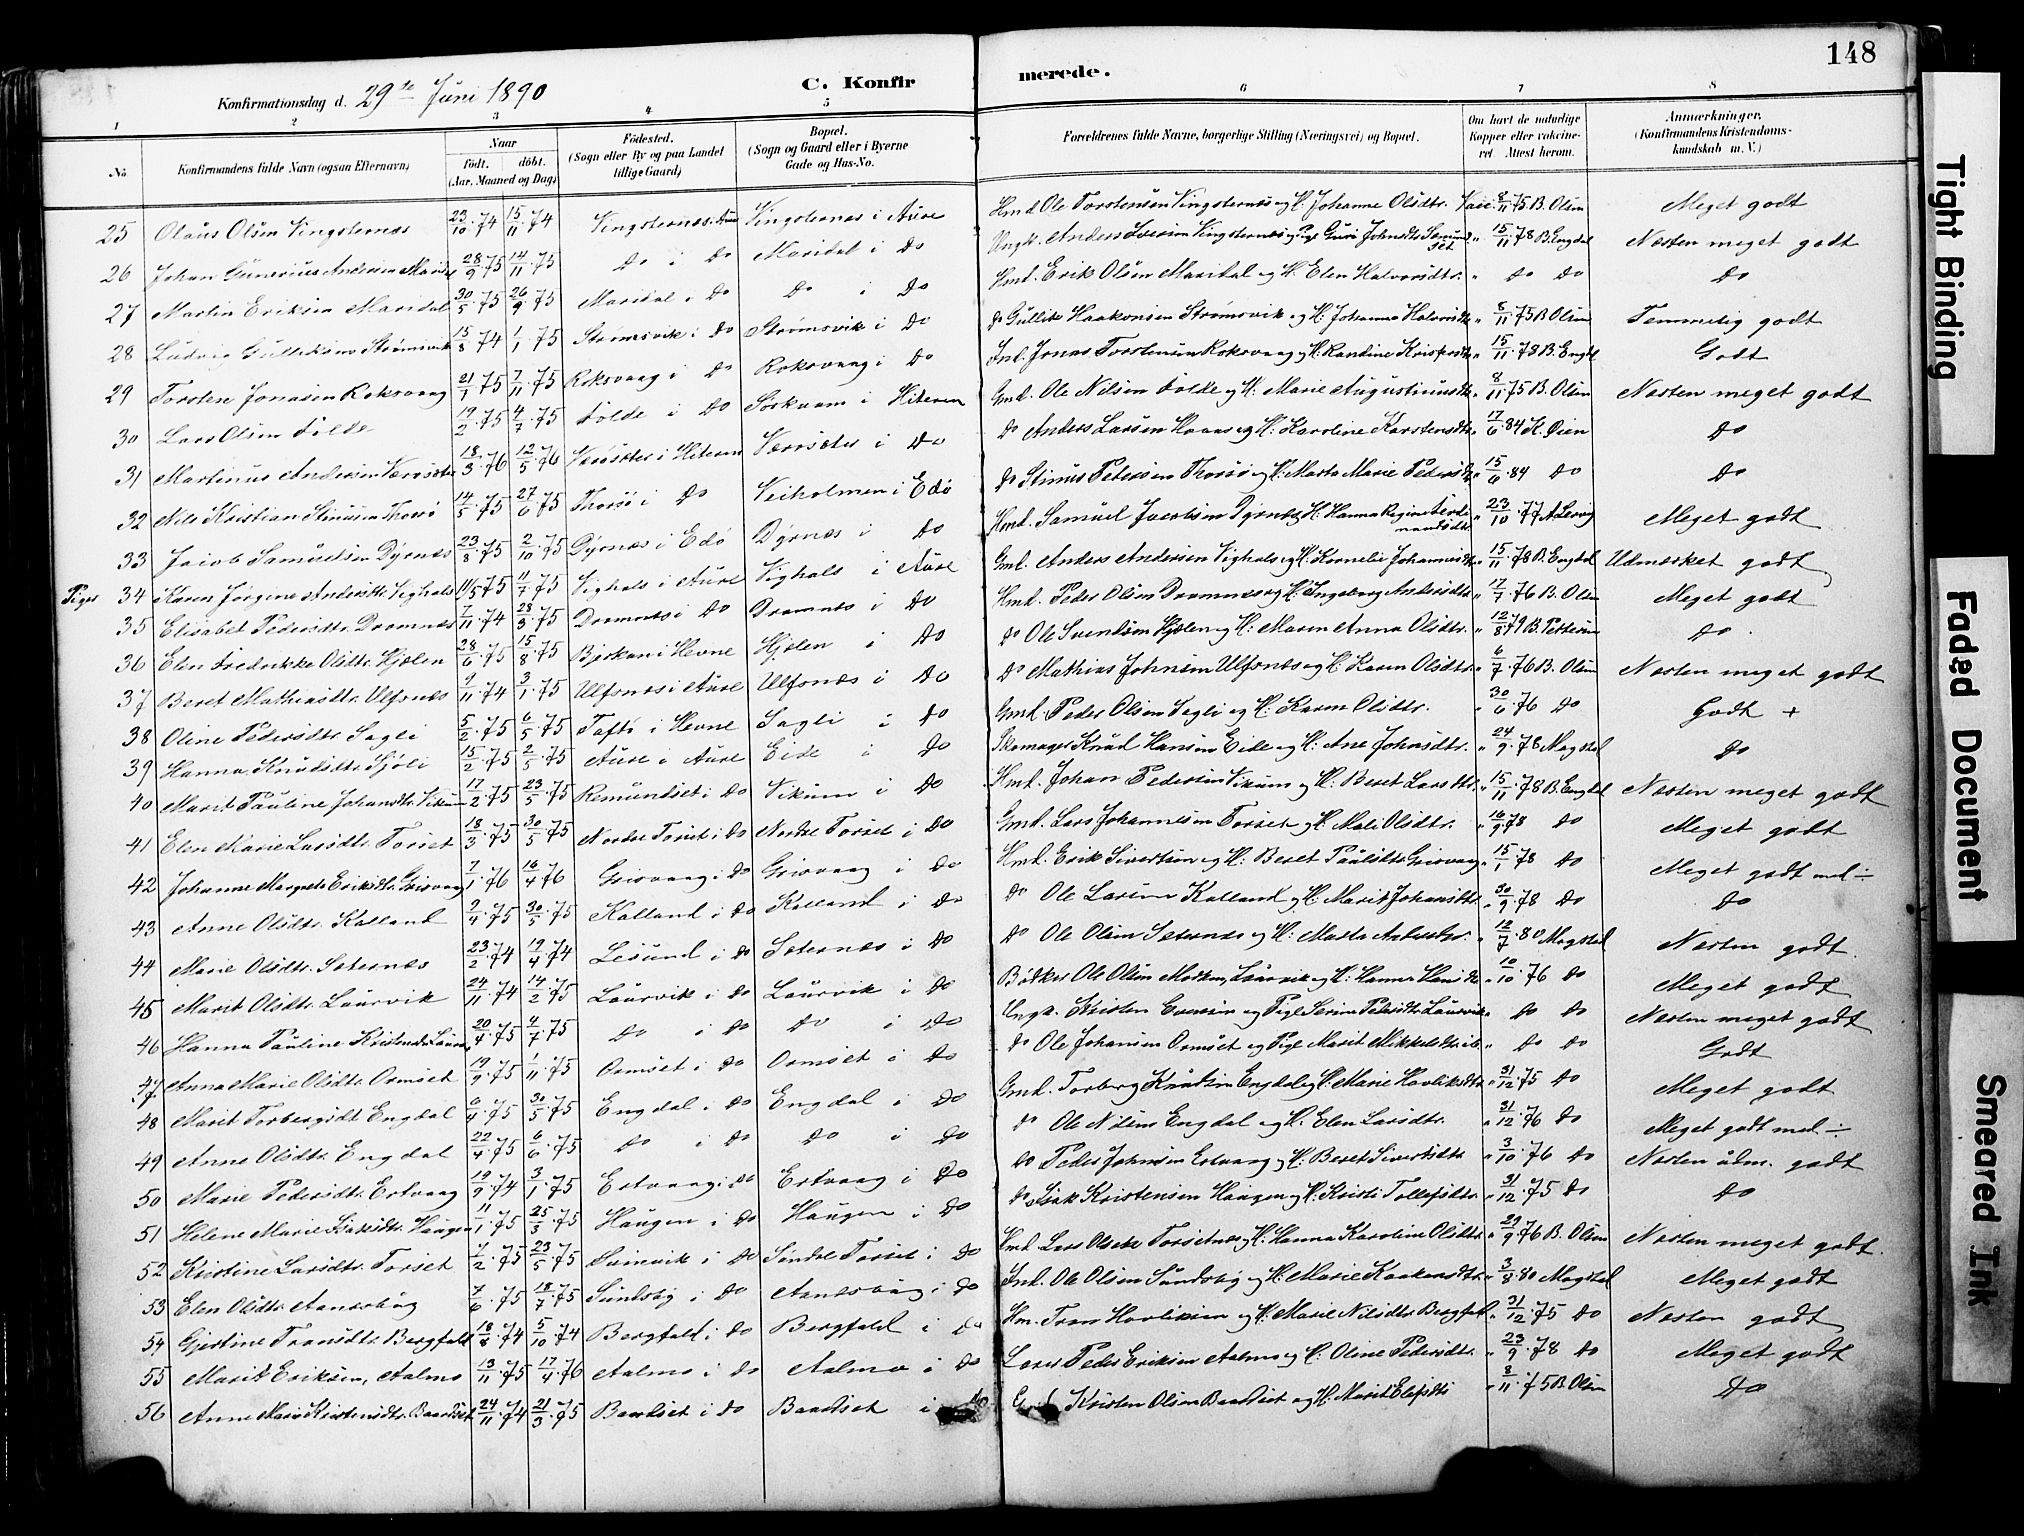 148
Konfirmationsdag d. 29de Juni 1890
C. Konfirmerede.
1 2 3 4 5 6 7 8
No
Konfirmandens fulde Navn (ogsaa Efternavn)
Naar født. døbt. (Aar, Maaned og Dag)
Födested. (Sogn eller By og paa Landet tillige Gaard)
Bopæl. (Sogn og Gaard eller i Byerne Gade og Hus-No.
Forældrenes fulde Navne, borgerlige Stilling (Næringsvei) og Bopæl.
Om havt de naturlige Kopper eller vaccineret. Attest herom.
Anmærkninger. (Konfirmandens Kristendomskundskab m. V.)
25 Olaus Olsen Vingsternæs 23/10 74 15/11 74 Vingsternæs i Aure Vingsternæs i Aure Hmd Ole Torstensen Vingsternæs og H. Johanne Olsdtr. Vacc. 8/11 75 B. Olsen Meget godt
26 Johan Gunerius Andersen Maridal 28/9 75 14/11 75 Do i Do Maridal i Do Ungk. Anders Iversen Vingsternæs og Pige Guri Johnsdtr. " 15/11 78 B. Engdal Næsten meget godt
27 Martin Eriksen Maridal 30/5 75 26/9 75 Maridal i Do Do i Do Hmd. Erik Olsen Maridal og H. Elen Halvorsdtr. " Do Do Do
28 Ludvig Gulliksen Strømsvik 15/8 74 1/1 75 Strømsvik i Do Strømsvik i Do Do Gullik Haakonsen Strømsvik og H. Johanna Halvorsdtr " 8/11 75 B. Olsen Temmelig godt
29 Torsten Jonasen Roksvaag 21/1 75 7/11 75 Roksvaag i Do Roksvaag i Do Ind. Jonas Torstensen Roksvaag og H. Randine " 15/11 78 B. Engdal Godt
30 Lars Olsen Folde 19/2 75 4/7 75 Folde i Do Sørkvam i Hiteren Gmd. Ole Nilsen Folde og H. Marie " 8/11 75 B. Olsen Næsten meget godt
31 Martinus Andersen Værøsæter 18/3 76 12/5 76 Værøsæter i Hiteren Værøsæter i Do Do Anders Larsen og H. Karoline Karstensdtr " 17/6 84 K. Øien Do
32 Nils Kristian Stinusen Thorsø 14/5 75 27/6 75 Thorsø i Do Veiholmen i Edø Do Stinus Petersen Thorsø og H. Marta Marie Pedersdtr " 15/6 84 Do Do
33 Jacob Samuelsen Dyrnæs 23/8 75 2/10 75 Dyrnæs i Edø Dyrnæs i Do Hmd. Samuel Jacobsen Dyrnæs og H. Hanna Regine " 23/10 77 Meget godt
Piger 34 Karen Jørgine Andersdtr. Vighals 11/5 75 11/7 75 Vighals i Aure Vighals i Aure Gmd. Anders Andersen Vighals og H. Kornelie Johannesdtr " 15/11 78 B. Engdal Udmærket godt
35 Elisabet Pedersdtr. Dromnæs 7/11 74 28/3 75 Dromnæs i Do Dromnæs i Do Hmd. Peder Olsen Dromnæs og H. Ingeborg Andersdtr " 17/7 76 B. Olsen Meget godt
36 Elen Fredrikke Olsdtr. Hjelen 28/6 75 15/8 75 Bjerkan i Hevne Hjelen i Do Do Ole Svendsen Hjelen og H. Maren Anna Olsdtr. " 12/8 79 B. Pettersen Do
37 Beret Mathiasdtr. Ulfsnæs 9/11 74 3/1 75 Ulfsnæs i Aure Ulfsnæs i Do Do Mathias Johnsen Ulfsnæs og H. Karen Olsdtr. " 6/7 76 B. Olsen Næsten meget godt
38 Oline Pedersdtr. Sagli 5/2 75 6/5 75 Taftø i Hevne Sagli i Do Gmd. Peder Olsen Sagli og H. Karen Olsdtr. " 30/6 76 Do Godt +
39 Hanna Knudsdtr. 15/2 75 2/5 75 Aure i Aure Eide i Do Skomager Knud Hansen Eide og H. Ane Johnsdtr. " 24/9 78 Magstad Do
40 Marit Pauline Johansdtr. Vikum 17/2 75 23/5 75 Remundset i Do Vikum i Do Hmd. Johan Pedersen Vikum og H. Beret Larsdtr. " 15/11 78 B. Engdal Næsten meget godt
41 Elen Marie Larsdtr. Torset 18/3 75 30/5 75 Nordre Torset i Do Nordre Torset i Do Gmd. Lars Johannesen Torset og H. Mali Olsdtr. " 16/9 78 Do Meget godt
42 Johanne Margrete Eriksdtr. Grisvaag 7/1 76 16/4 76 Grisvaag i Do Grisvaag i Do Hmd. Erik Sivertsen og H. Beret Paulsdtr Grisvaag " 15/1 78 Do Meget godt med ÷
43 Anne Olsdtr. Kalland 2/4 75 30/5 75 Kalland i Do Kalland i Do Do Ole Larsen Kalland og H. Marit Johansdtr. " 30/9 78 Do Do
44 Marie Olsdtr. Seternæs 23/2 74 19/4 74 Lesund i Do Seternæs i Do Do Ole Olsen Seternæs og H. Marta " 12/7 80 Magstad Næsten godt.
45 Marit Olsdtr. Laurvik 24/11 74 14/2 75 Laurvik i Do Laurvik i Do Bødker Ole Olsen Laurvik og H. Hanna " 10/10 76 Do Meget godt
46 Hanna Pauline Kristensdtr. Laurvik 20/4 75 4/7 75 Do i Do Do i Do Ungk. Kristen Evensen og Pige Serine Pedersdtr. Laurvik " Do Do Næsten meget godt
47 Anna Marie Olsdtr. Ormset 19/9 75 1/11 75 Ormset i Do Ormset i Do Do Ole Johansen Ormset og Pige Marit Mikkelsdtr. ib. " Do Do Godt
48 Marit Torbergsdt. Engdal 6/4 75 30/5 75 Engdal i Do Engdal i Do Gmd. Torberg Knutsen Engdal og H. Marie Havliksdtr " 31/12 75 Do Meget godt
49 Anne Olsdtr. Engdal 22/4 75 6/6 75 Do i Do Do i Do Do Ole Nilsen Engdal og H. Elen Larsdtr. " 31/12 76 Do Meget godt med ÷
50 Marie Pedersdtr. Ertvaag 19/9 74 3/1 75 Ertvaag i Do Ertvaag i Do Do Peder Johnsen Ertvaag og H. Beret Sivertsdtr " 3/10 76 Do Næsten udm. godt
51 Helene Marie Isaksdtr. Haugen 11/1 75 25/3 75 Haugen i Do Haugen i Do Do Isak Kristensen Haugen og H. Kristi Tollefsdtr. " 31/12 75 Do Do
52 Kristine Larsdtr. Torset 4/2 75 23/5 75 Svinvik i Do Søndre Torset i Do Hmd. Lars Olsen Torsetnæs og H. Hanna Karoline Olsdtr. " 29/9 76 B. Olsen Næsten meget godt.
53 Elen Olsdtr. 7/6 75 18/7 75 Sundsby i Do i Do Ind. Ole Olsen Sundsby og H. Marie Haakensdtr. " 3/8 80 Magstad Meget godt
54 Gjertine Tronsdtr. Bergfald 18/8 74 5/10 74 Bergfald i Do Bergfald i Do Hm. Tron Havliksen og H. Marie Nilsdtr. Bergfald " 31/12 75 Do Næsten godt
55 Marit Eriksen, Aalmo 13/11 75 17/4 76 Aalmo i Do Aalmo i Do Lærer Peder Eriksen Aalmo og H. Oline Pedersdtr. " 23/9 78 Do Meget godt
56 Anne Marie Kristensdtr. Baardset 24/11 74 21/3 75 Baardset i Do Baardset i Do Kristen Olsen Baardset og H. Marit " 8/11 75 B. Olsen Do
Tight Binding
Faded Document
Smeared Ink